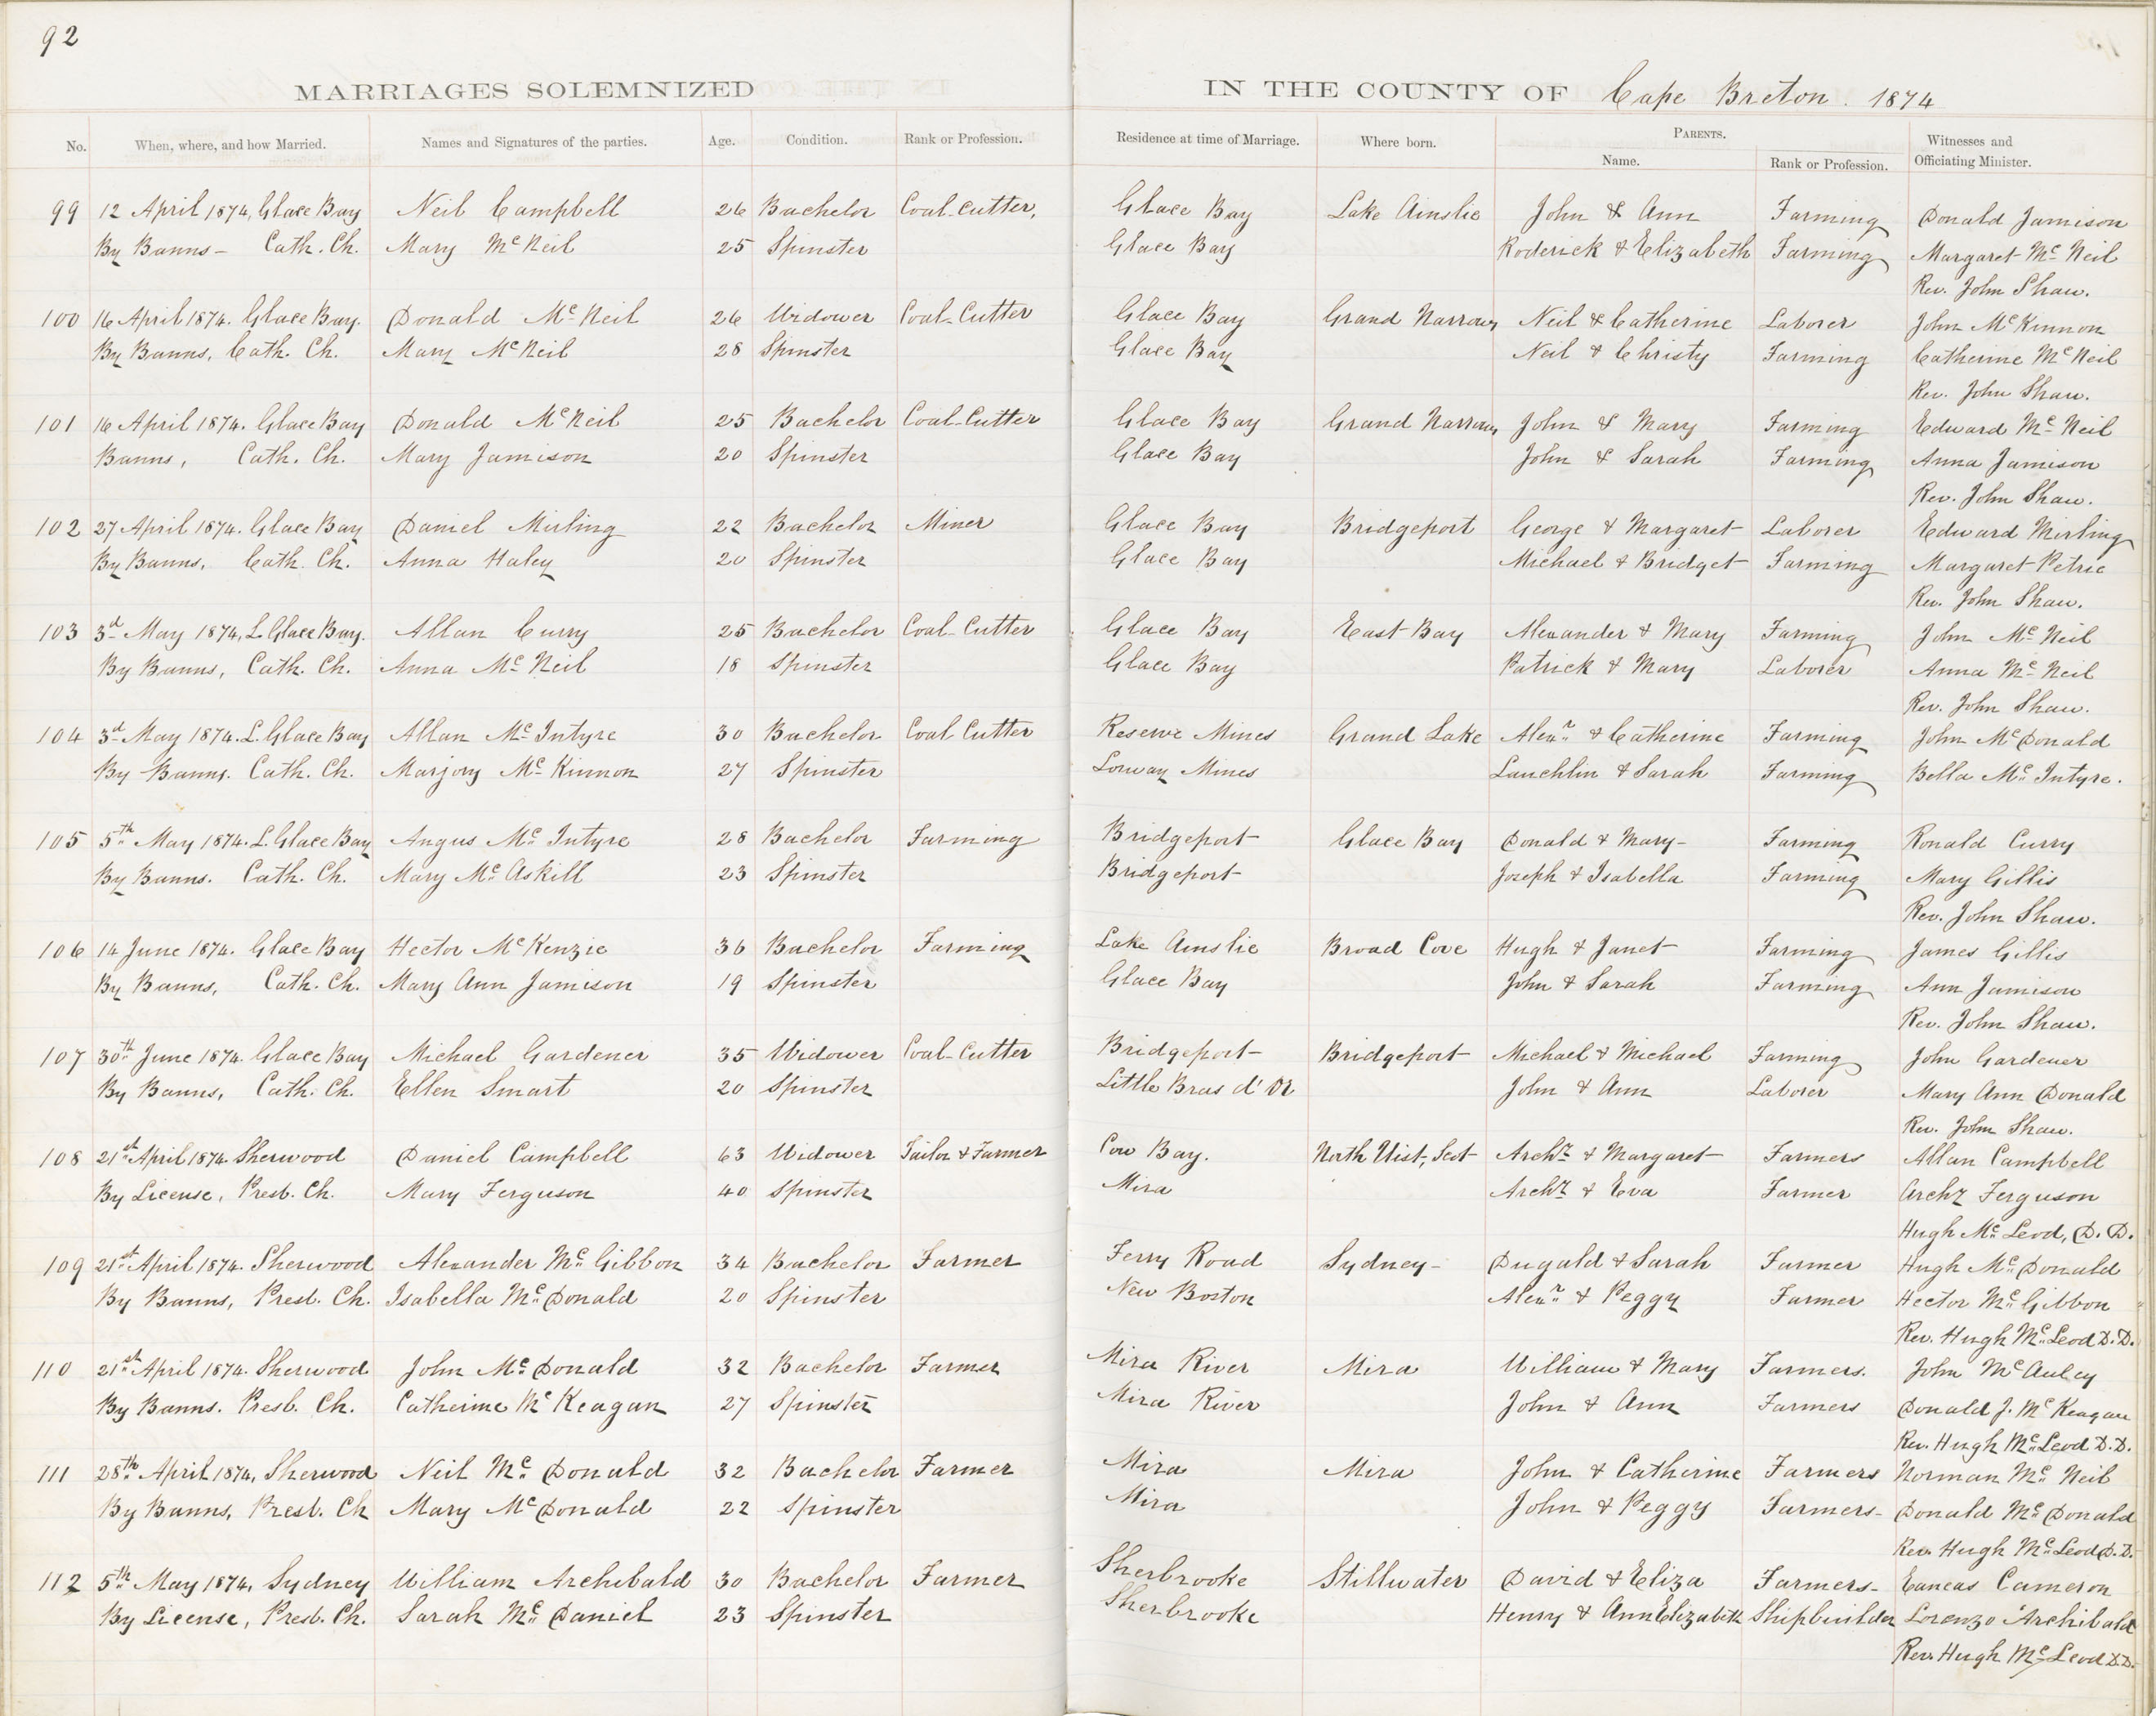 92
MARRIAGES SOLEMNIZED IN THE COUNTY OF Cape Breton. 1874
No. When, where, and how Married. Names and Signatures of the parties. Age. Condition. Rank or Profession. Residence at time of Marriage. Where born. PARENTS. Witnesses and
Name. Rank or Profession. Officiating Minister.
99 12 April 1874, Glace Bay Neil Campbell 26 Bachelor Coal-Cutter, Glace Bay Lake Ainslie John & Ann Farming Donald Jamison
By Banns - Cath. Ch. Mary McNeil 25 Spinster Glace Bay Roderick & Elizabeth Farming Margaret McNeil
Rev. John Shaw.
100 16 April 1874. Glace Bay. Donald McNeil 26 Widower Coal-Cutter Glace Bay Grand Narrows Neil & Catherine Laborer John McKinnon
By Banns, Cath. Ch. Mary McNeil 28 Spinster Glace Bay Neil & Christy Farming Catherine McNeil
Rev. John Shaw.
101 16 April 1874. Glace Bay Donald McNeil 25 Bachelor Coal-Cutter Glace Bay Grand Narrows John & Mary Farming Edward McNeil
Banns, Cath. Ch. Mary Jamison 20 Spinster Glace Bay John & Sarah Farming Anna Jamison
Rev. John Shaw.
102 27 April 1874. Glace Bay Daniel Mirling 22 Bachelor Miner Glace Bay Bridgeport George & Margaret Laborer Edward Mirling
By Banns, Cath. Ch. Anna Haley 20 Spinster Glace Bay Michael & Bridget Farming Margaret Petrie
Rev. John Shaw.
103 3d May 1874, L. Glace Bay. Allan Curry 25 Bachelor Coal-Cutter Glace Bay East Bay Alexander & Mary Farming John McNeil
By Banns, Cath. Ch. Anna McNeil 18 Spinster Glace Bay Patrick & Mary Laborer Anna McNeil
Rev. John Shaw.
104 3d May 1874. L. Glace Bay Allan McIntyre 30 Bachelor Coal Cutter Reserve Mines Grand Lake Alexr & Catherine Farming John McDonald
By Banns. Cath. Ch. Marjory McKinnon 27 Spinster Lorway Mines Lauchlin & Sarah Farming Bella McIntyre.
105 5th May 1874. L. Glace Bay Angus McIntyre 28 Bachelor Farming Bridgeport Glace Bay Donald & Mary- Farming Ronald Curry
By Banns. Cath. Ch. Mary McAskill 23 Spinster Bridgeport Joseph & Isabella Farming Mary Gillis
Rev. John Shaw.
106 14 June 1874. Glace Bay Hector McKenzie 36 Bachelor Farming Lake Ainslie Broad Cove Hugh & Janet Farming James Gillis
By Banns, Cath. Ch. Mary Ann Jamison 19 Spinster Glace Bay John & Sarah Farming Ann Jamison
Rev. John Shaw.
107 30th June 1874. Glace Bay Michael Gardener 35 Widower Coal-Cutter Bridgeport Bridgeport Michael & Michael Farming John Gardener
By Banns, Cath. Ch. Ellen Smart 20 Spinster Little Bras d'Or John & Ann Laborer Mary Ann Donald
Rev. John Shaw.
108 21st April 1874 Sherwood Daniel Campbell 63 Widower Tailor & Farmer Cow Bay. North Uist, Scot Archd & Margaret Farmers Allan Campbell
By License, Presb. Ch. Mary Ferguson 40 Spinster Mira Archd & Eva Farmer Archd Ferguson
Hugh McLeod, D.D.
109 21st April 1874. Sherwood Alexander McGibbon 34 Bachelor Farmer Ferry Road Sydney- Dugald & Sarah Farmer Hugh McDonald
By Banns, Presb. Ch. Isabella McDonald 20 Spinster New Boston Alexr & Peggy Farmer Hector McGibbon
Rev. Hugh McLeod D.D.
110 21st April 1874. Sherwood John McDonald 32 Bachelor Farmer Mira River Mira William & Mary Farmers. John McAuley
By Banns. Presb. Ch. Catherine McKeagan 27 Spinster Mira River John & Ann Farmers Donald J. McKeagan
Rev. Hugh McLeod D.D.
111 28th April 1874, Sherwood Neil McDonald 32 Bachelor Farmer Mira Mira John & Catherine Farmers Norman McNeil
By Banns, Presb. Ch Mary McDonald 22 Spinster Mira John & Peggy Farmers- Donald McDonald
Rev. Hugh McLeod D.D.
112 5th May 1874, Sydney William Archibald 30 Bachelor Farmer Sherbrooke Stillwater David & Eliza Farmers- Eaneas Cameron
By License, Presb. Ch. Sarah McDaniel 23 Spinster Sherbrooke Henry & Ann Elizabeth Shipbuilder Lorenzo Archibald
Rev. Hugh McLeod D.D.